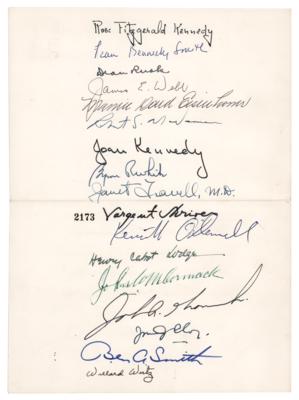 Rose Fitzgerald Kennedy
Jean Kennedy Smith
Dean Rusk
James E. Webb
Mamie Doud Eisenhower
Robert S. McNamara
Joan Kennedy
Byron R. White
Janet Travell, M.D.
2173 Sargent Shriver
Kenneth O'Donnell
Henry Cabot Lodge
John W. McCormack
John A.
Ben A Smith
Willard Wirtz